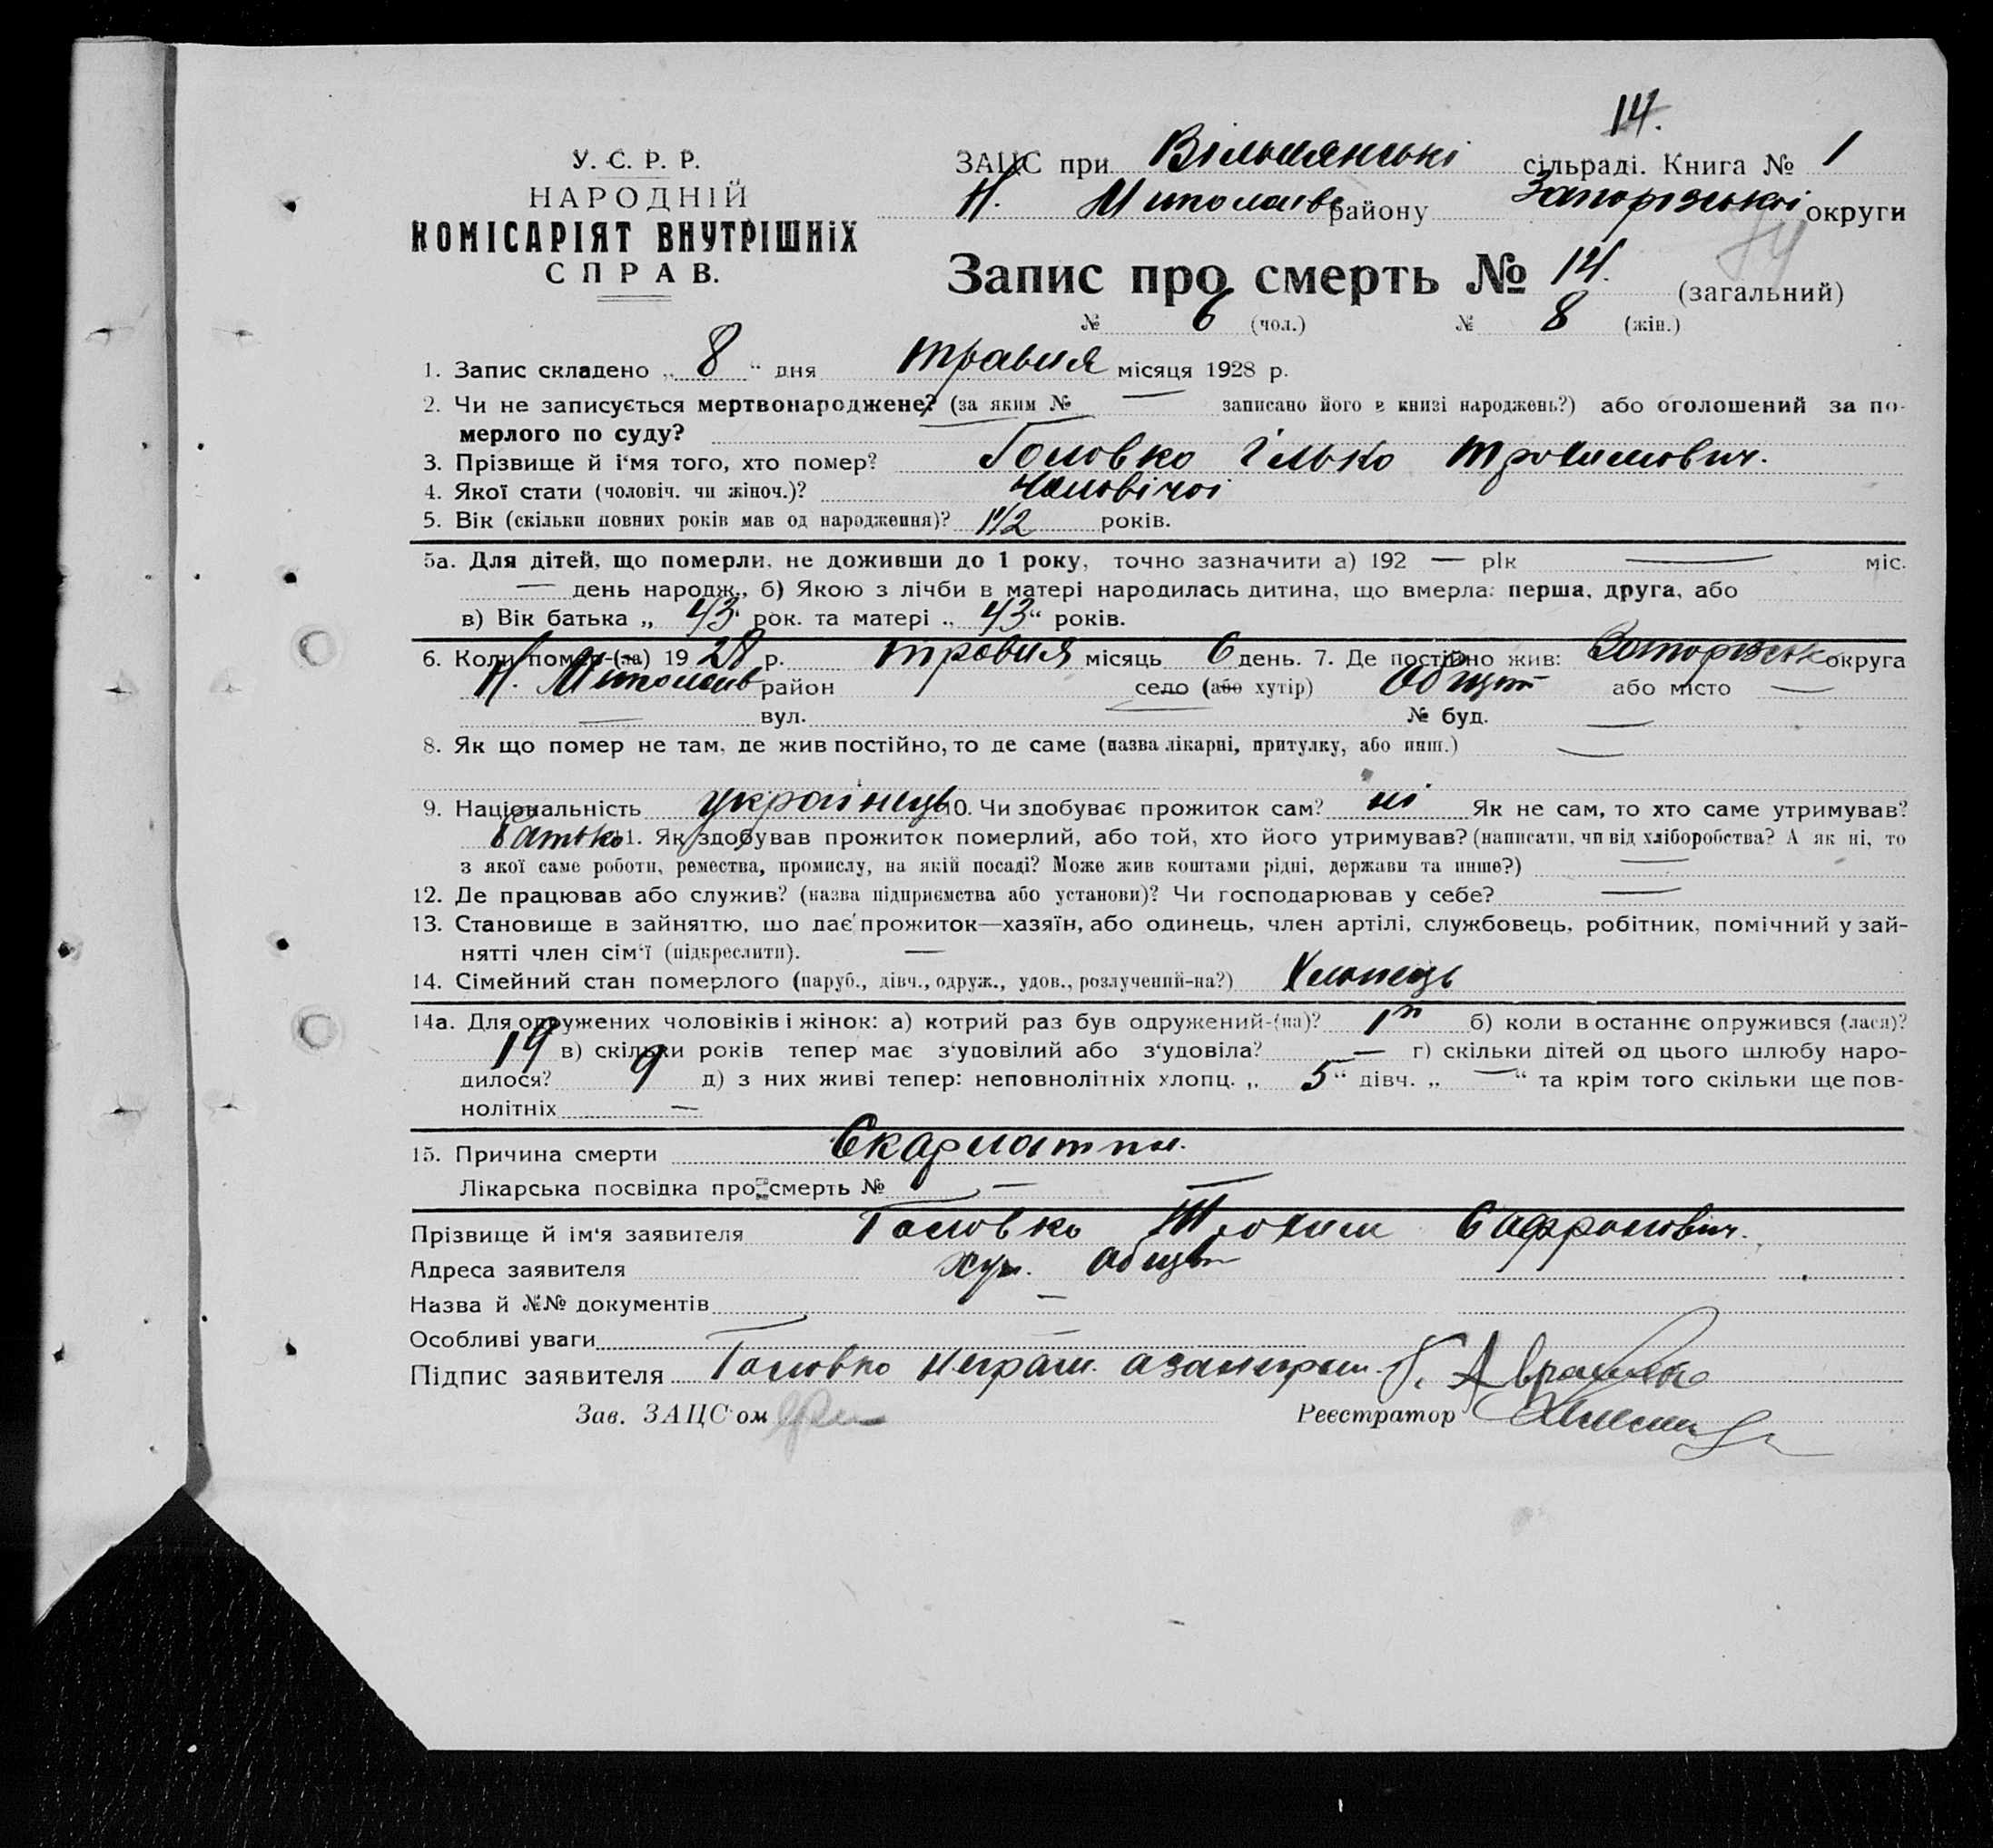 14.
У. С. Р. Р.
НАРОДНІЙ
КОМІСАРІЯТ ВНУТРІШНІХ
СПРАВ.
ЗАЦС при Вільнянські сільраді. Книга № 1
Н. Миколаїв району Запорізької округи
Запис про смерть № 14. (загальний)
№ 6 (чол.) № 8 (жін.)
1. Запис складено „ 8 “ дня травня місяця 1928 р.
2. Чи не записується мертвонароджене? (за яким № — записано його в книзі народжень?) або оголошений за по-
мерлого по суду?
3. Прізвище й і‘мя того, хто помер? Головко Ілько Трохимович.
4. Якої стати (чоловіч. чи жіноч.)? чоловічої
5. Вік (скільки повних років мав од народження)? 1 1/2 років.
5а. Для дітей, що померли, не доживши до 1 року, точно зазначити а) 192 — рік — міс.
— день народж., б) Якою з лічби в матері народилась дитина, що вмерла: перша, друга, або
в) Вік батька „ 43 “ рок. та матері „ 43 “ років.
6. Коли помер-(ла) 1928 р. травня місяць 6 день. 7. Де постійно жив: Запорізьк округа
Н. Миколаїв район село (або хутір) Общи або місто —
— вул. № буд. —
8. Як що помер не там, де жив постійно, то де саме (назва лікарні, притулку, або инш.) —
9. Національність українець 10. Чи здобуває прожиток сам? ні Як не сам, то хто саме утримував?
батько 11. Як здобував прожиток померлий, або той, хто його утримував? (написати, чи від хліборобства? А як ні, то
з якої саме роботи, ремества, промислу, на якій посаді? Може жив коштами рідні, держави та инше?) —
12. Де працював або служив? (назва підприємства або установи)? Чи господарював у себе? —
13. Становище в зайняттю, що дає прожиток—хазяїн, або одинець, член артілі, службовець, робітник, помічний у зай-
нятті член сім‘ї (підкреслити). —
14. Сімейний стан померлого (паруб., дівч., одруж., удов., розлучений-на?) Хлопець
14а. Для одружених чоловіків і жінок: а) котрий раз був одружений-(на)? 1й б) коли в останнє опружився (лася)?
19 в) скільки років тепер має з‘удовілий або з‘удовіла? — г) скільки дітей од цього шлюбу наро-
дилося? 9 д) з них живі тепер: неповнолітніх хлопц. „ 5 “ дівч. „ — “ та крім того скільки ще пов-
нолітніх —
15. Причина смерти Скарлатина.
Лікарська посвідка про смерть № —
Прізвище й ім‘я заявителя Головко Трохим Сафронович.
Адреса заявителя хут. Общи
Назва й №№ документів —
Особливі уваги —
Підпис заявителя Головко неграм. а за негром.
Зав. ЗАЦС‘ом Реєстратор